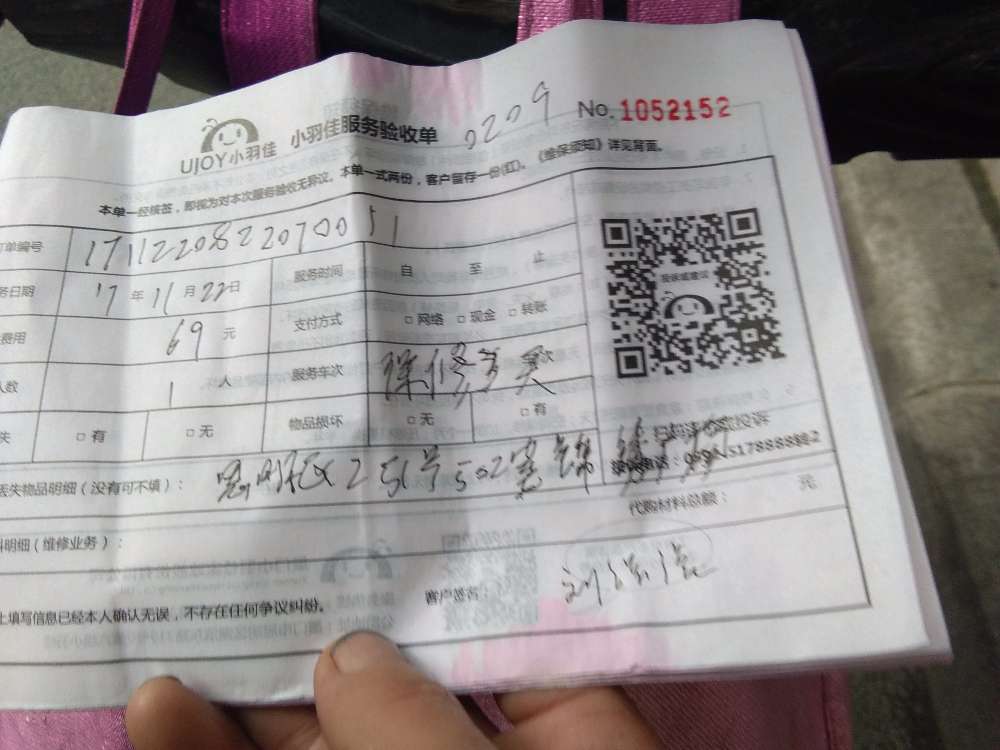 UJOY小羽佳 小羽佳服务验收单 0209 No.1052152
本单一经核签，即视为对本次服务验收无异议。本单一式两份，客户留存一份(红)。《维保须知》详见背面。
单编号 1711220822070051
日期 17年11月22日 服务时间 自 至 止
投诉或建议
费用 69元 支付方式 □网络 □现金 □转账
人数 1人 服务车次 次
失 □有 □无 物品损坏 □无 □有
丢失物品明细（没有可不填）： 251号502室
代购材料总额： 元
料明细（维修业务）：
上填写信息已经本人确认无误，不存在任何争议纠纷。 客户签名：